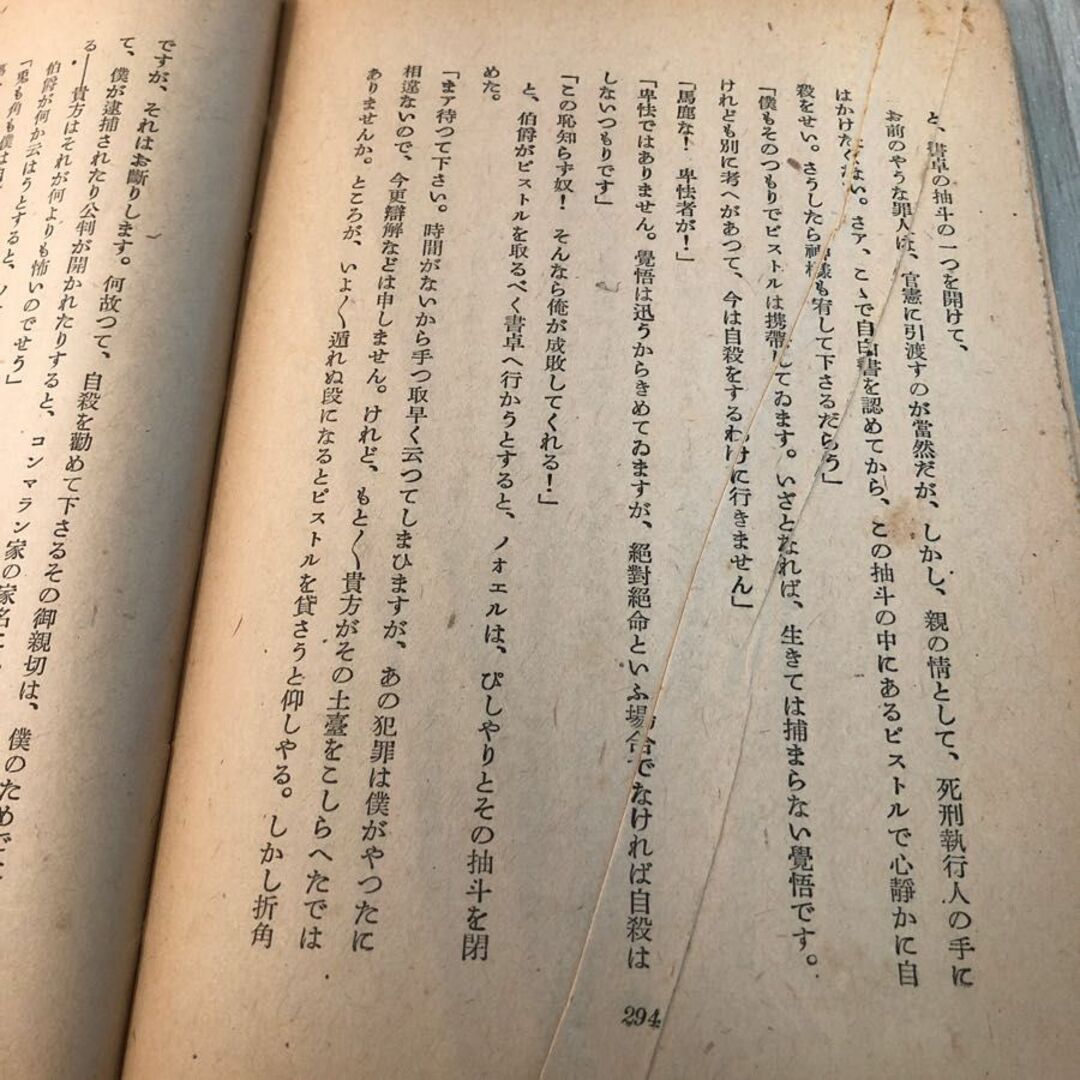 と、書卓の抽斗の一つを開けて、
お前のやうな罪人は、官憲に引渡すのが當然だが、しかし、親の情として、死刑執行人の手に
はかけたくない。さア、こゝで自白書を認めてから、この抽斗の中にあるピストルで心靜かに自
殺をせい。さうしたら神様も宥して下さるだらう」
「僕もそのつもりでピストルは携帶してゐます。いざとなれば、生きては捕まらない覺悟です。
けれども別に考へがあつて、今は自殺をするわけに行きません」
「馬鹿な！　卑怯者が！」
「卑怯ではありません。覺悟は迅うからきめてゐますが、絕對絕命といふ場合でなければ自殺は
しないつもりです」
「この恥知らず奴！　そんなら俺が成敗してくれる！」
と、伯爵がピストルを取るべく書卓へ行かうとすると、ノォエルは、ぴしやりとその抽斗を閉
めた。
「まア待つて下さい。時間がないから手つ取早く云つてしまひますが、あの犯罪は僕がやつたに
相違ないので、今更辯解などは申しません。けれど、もと〱貴方がその土臺をこしらへたでは
ありませんか。ところが、いよ〱遁れぬ段になるとピストルを貸さうと仰しやる。しかし折角
294
ですが、それはお斷りします。何故つて、自殺を勸めて下さるその御親切は、僕のためでは
て、僕が逮捕されたり公判が開かれたりすると、コンマラン家の家名に
る――貴方はそれが何よりも怖いのでせう」
伯爵が何か云はうとすると、ノ
「兎も角も僕は